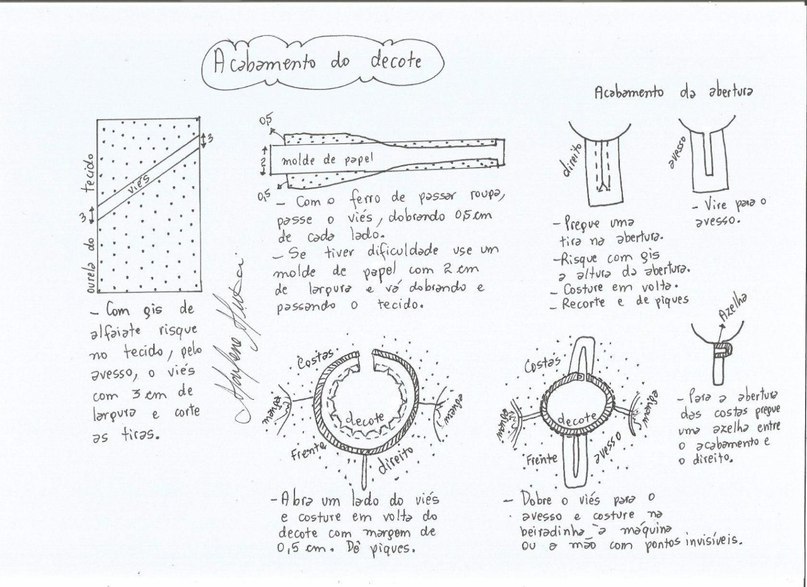 Acabamento do decote
ourela do tecido
3
viés
3
- Com gis de
alfaiate risque
no tecido, pelo
avesso, o viés
com 3 cm de
largura e corte
as tiras.
0,5
2
molde de papel
0,5
- Com o ferro de passar roupa,
passe o viés, dobrando 0,5 cm
de cada lado.
- Se tiver dificuldade use um
molde de papel com 2 cm
de largura e vá dobrando e
passando o tecido.
Acabamento da abertura
direito
- Pregue uma
tira na abertura.
- Risque com gis
a altura da abertura.
- Costure em volta.
- Recorte e de piques
avesso
- Vire para o
avesso.
Azelha
- Para a abertura
das costas pregue
uma azelha entre
o acabamento e
o direito.
Costas
manga
decote
manga
Frente
direito
- Abra um lado do viés
e costure em volta do
decote com margem de
0,5 cm. Dê piques.
Costas
manga
decote
manga
Frente
avesso
- Dobre o viés para o
avesso e costure na
beiradinha a máquina
ou a mão com pontos invisíveis.